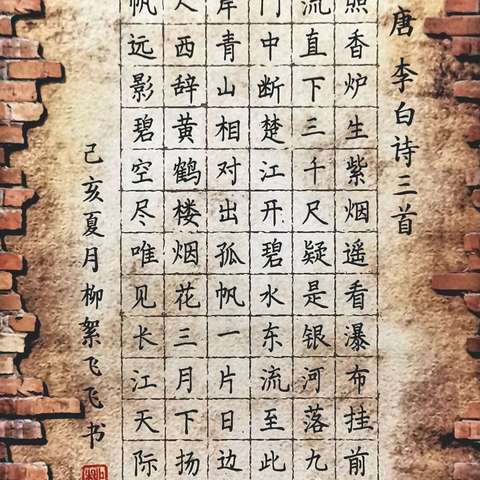 唐 李白诗三首
照香炉生紫烟遥看瀑布挂前
流直下三千尺疑是银河落九
门中断楚江开碧水东流至此
岸青山相对出孤帆一片日边
人西辞黄鹤楼烟花三月下扬
帆远影碧空尽唯见长江天际
己亥夏月柳絮飞飞书